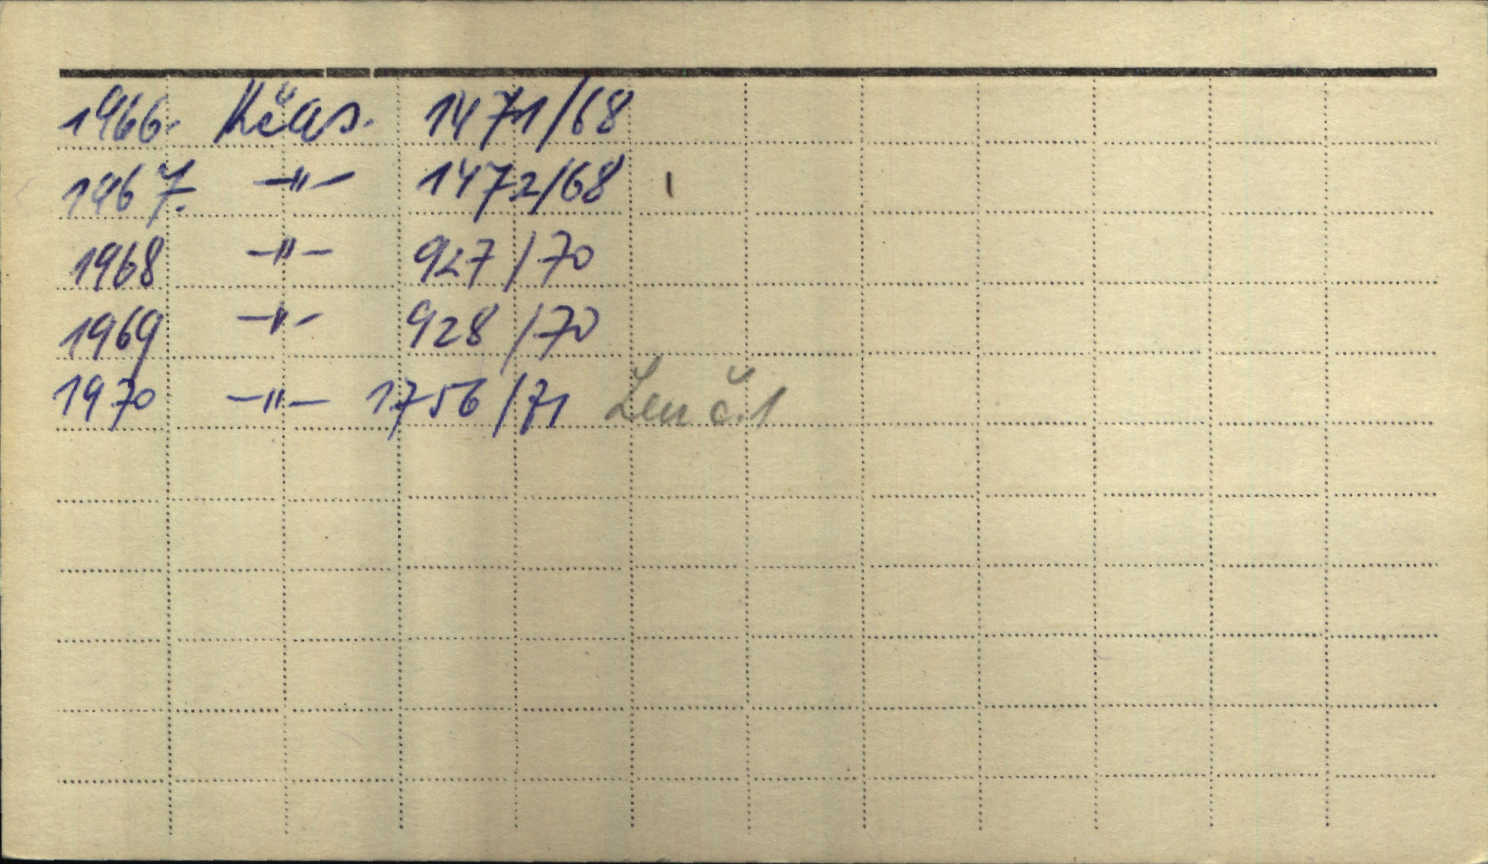 1966. Kčas. 1471/68
1967. —"— 1472/68 1
1968 —"— 927/70
1969 —"— 928/70
1970 —"— 1756/71 Len č. 1